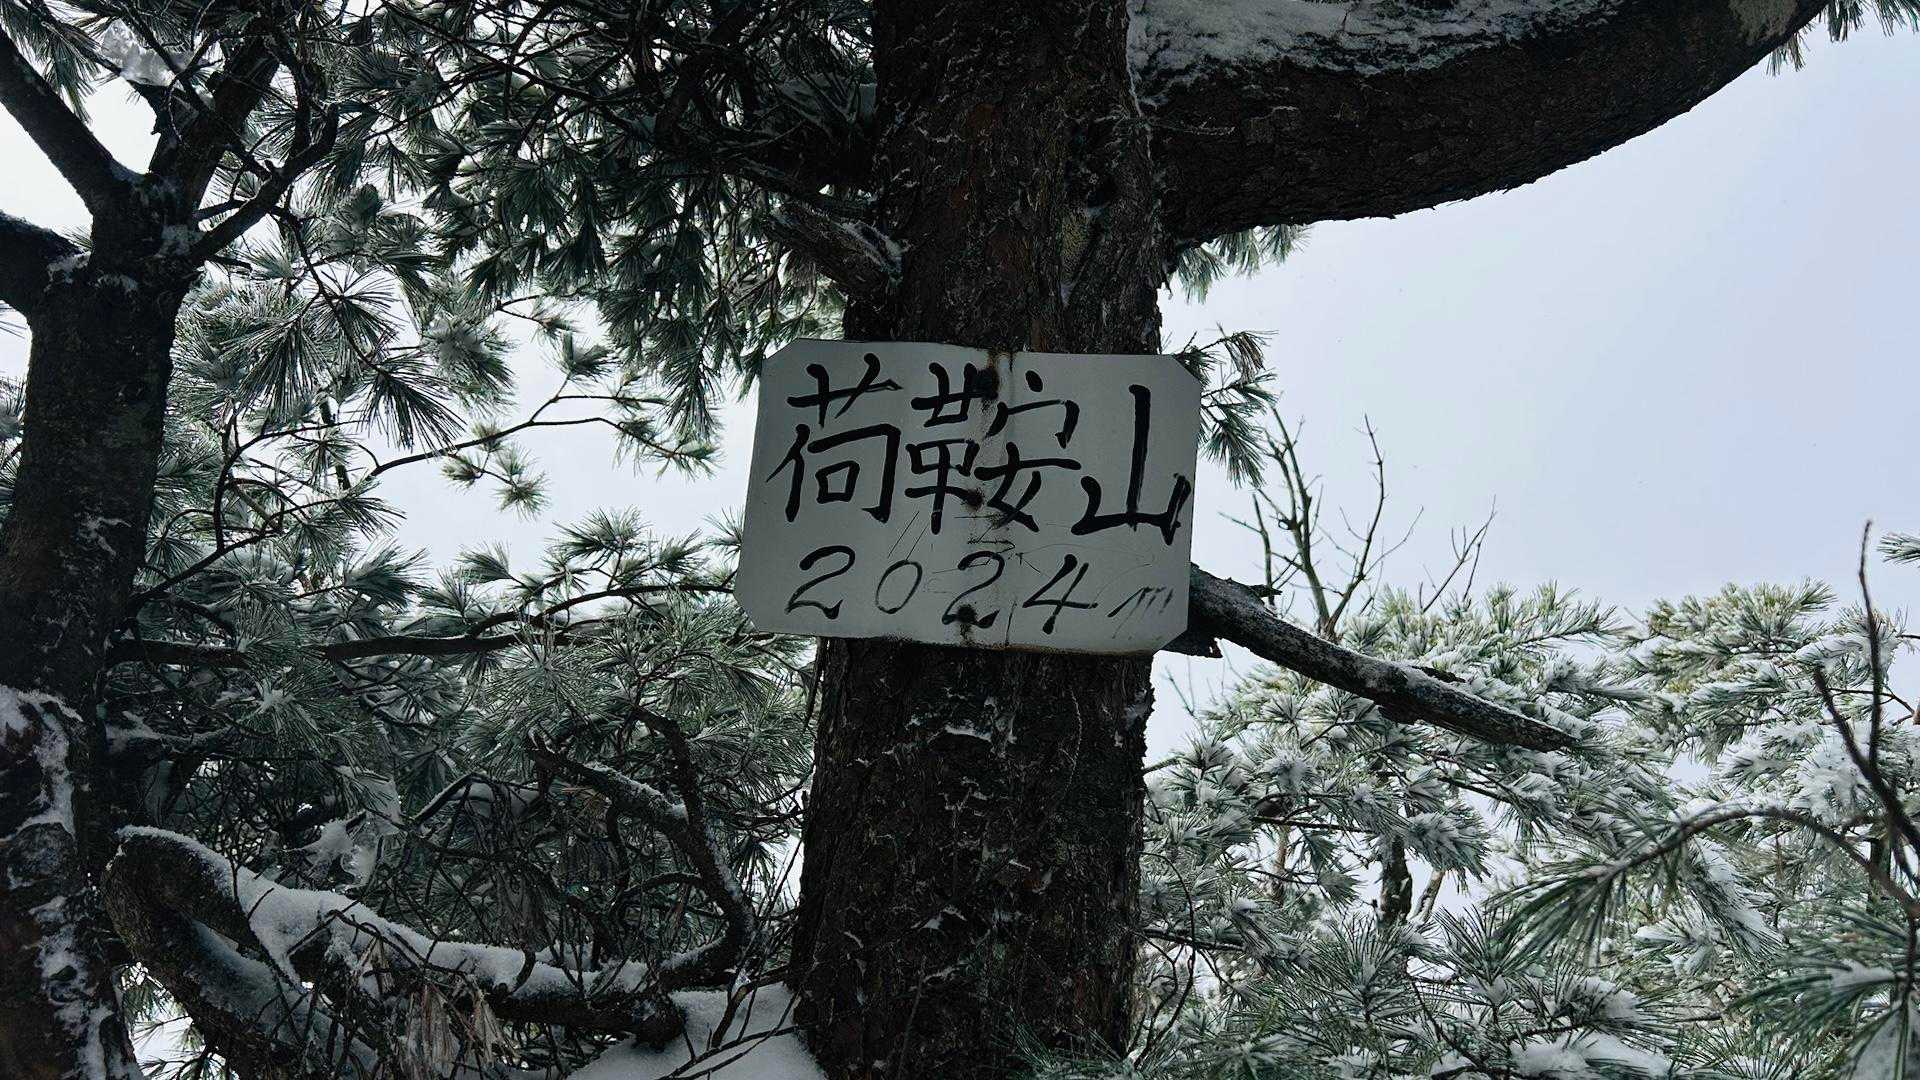 荷鞍山
2024m